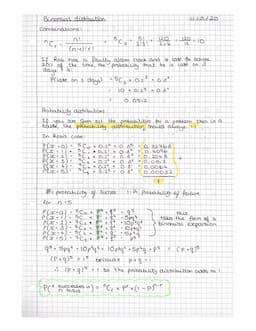 Binomial distribution
11/10/20
Combinations:
ⁿCᵣ = n! / (n-r)! r!
⁵C₃ = 5! / 3! 2! = 120 / = 120 / 12 = 10
If Ross has a faulty alarm clock and is late for school
20% of the time the probability that he is late on 3
days is
P(late on 3 days) = ⁵C₃ × 0.2³ × 0.8²
= 10 × 0.2³ × 0.8²
= 0.0512
Probability distribution:
If you are given all the probabilities for a problem then in a
table, the probability distribution should always = 1
In Ross' case:
P(X=0) = ⁵C₀ × 0.2⁰ × 0.8⁵ = 0.32768
P(X=1) = ⁵C₁ × 0.2¹ × 0.8⁴ = 0.4096
P(X=2) = ⁵C₂ × 0.2² × 0.8³ = 0.2048
P(X=3) = ⁵C₃ × 0.2³ × 0.8² = 0.0512
P(X=4) = ⁵C₄ × 0.2⁴ × 0.8¹ = 0.0064
P(X=5) = ⁵C₅ × 0.2⁵ × 0.8⁰ = 0.00032
1
p: probability of success
q: probability of failure
for n=5
P(X=0) = ⁵C₀ × p⁰ × q⁵ = q⁵
P(X=1) = ⁵C₁ × p¹ × q⁴ = 5pq⁴
P(X=2) = ⁵C₂ × p² × q³ = 10p²q³
P(X=3) = ⁵C₃ × p³ × q² = 10p³q²
P(X=4) = ⁵C₄ × p⁴ × q¹ = 5p⁴q
P(X=5) = ⁵C₅ × p⁵ × q⁰ = p⁵
this
takes the form of a
binomial expansion
q⁵ + 5pq⁴ + 10p²q³ + 10p³q² + 5p⁴q + p⁵ = (p+q)⁵
(p+q)⁵ = 1⁵ because p+q = 1
∴ (p+q)⁵ = 1 so the probability distribution adds to 1.
P(r successes in n trials) = ⁿCᵣ × pʳ × (1-p)ⁿ⁻ʳ